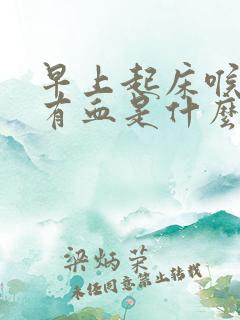 早上起床喉
有血是什麼
梁炳荣
未经同意禁止转载